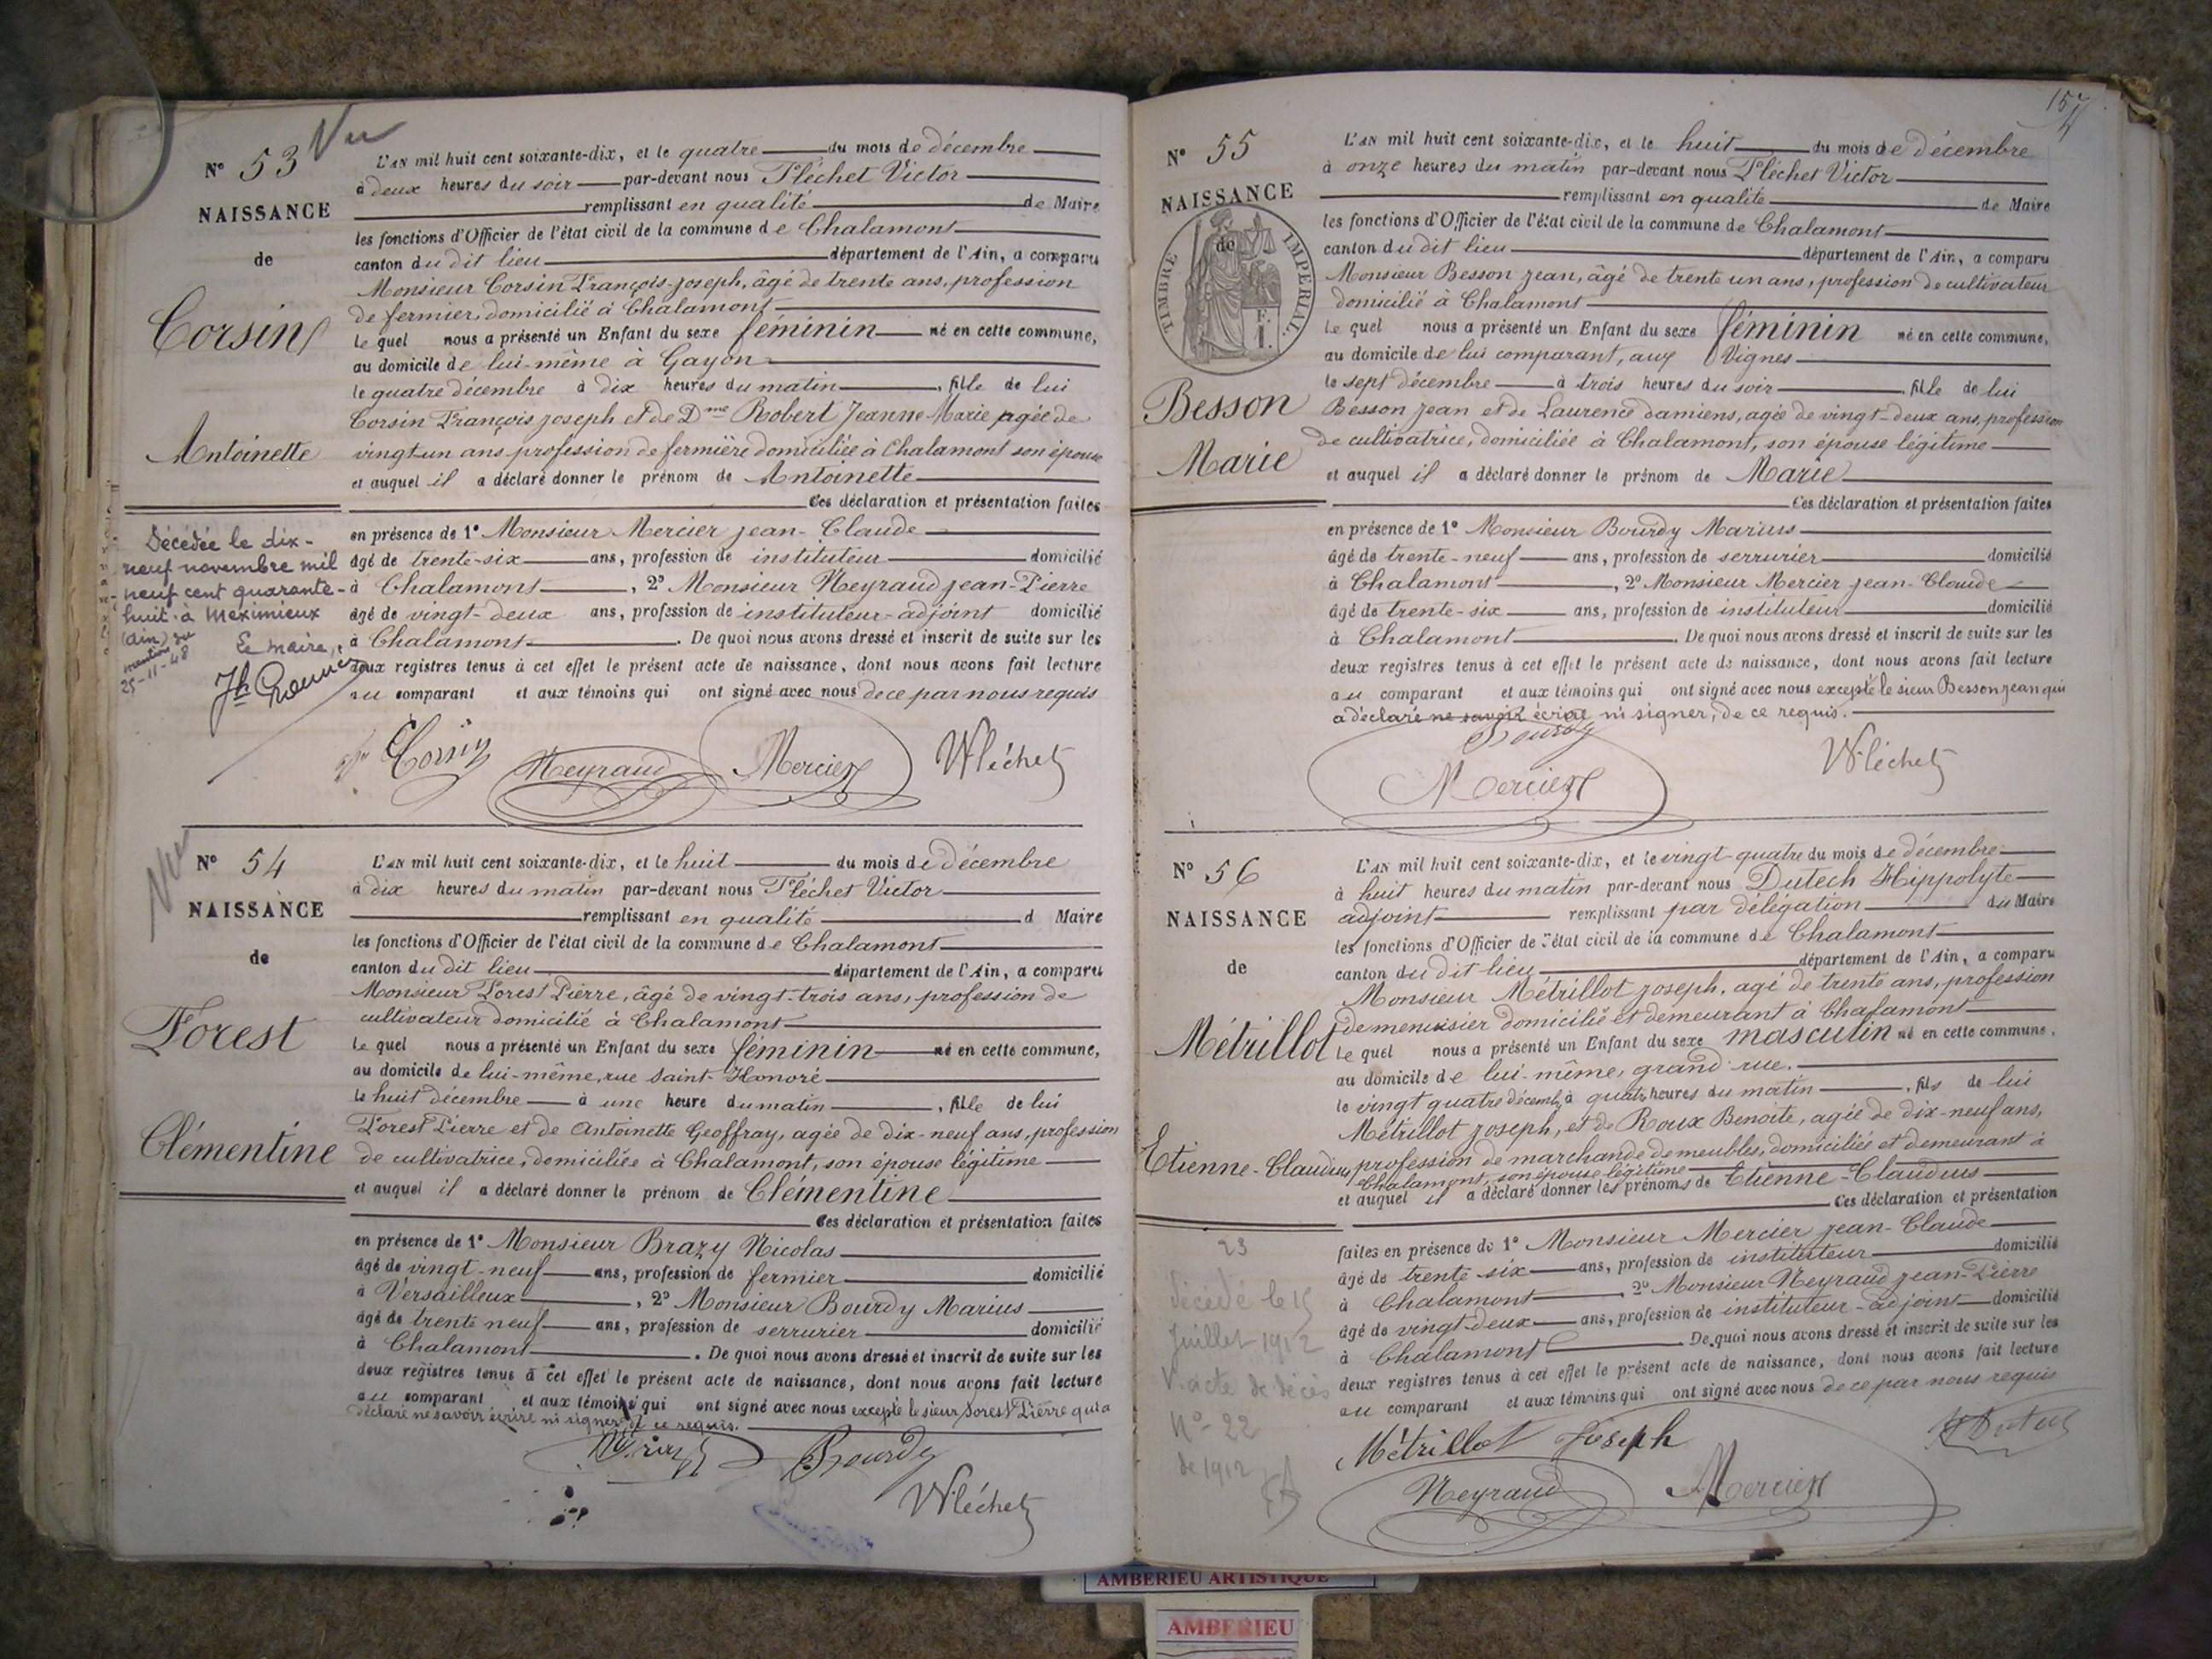 Vu
N° 53
NAISSANCE
de
Corsin
Antoinette
Décédée le dix-
neuf novembre mil
neuf cent quarante-
huit à Meximieux
(Ain)
mention
25-11-48
Le Maire,
L'AN mil huit cent soixante-dix, et le quatre du mois de décembre
à deux heures du soir par-devant nous Fléchet Victor
remplissant en qualité de Maire
les fonctions d'Officier de l'état civil de la commune de Chalamont
canton du dit lieu département de l'Ain, a comparu
Monsieur Corsin François-Joseph, âgé de trente ans, profession
de fermier, domicilié à Chalamont
Le quel nous a présenté un Enfant du sexe féminin né en cette commune,
au domicile de lui-même à Gayon
le quatre décembre à dix heures du matin, fille de lui
Corsin François Joseph et de Dme Robert Jeanne-Marie agée de
vingt-un ans profession de fermière domiciliée à Chalamont son épouse
et auquel il a déclaré donner le prénom de Antoinette
Ces déclaration et présentation faites
en présence de 1° Monsieur Mercier Jean-Claude
âgé de trente-six ans, profession de instituteur domicilié
à Chalamont, 2° Monsieur Neyraud Jean-Pierre
âgé de vingt-deux ans, profession de instituteur-adjoint domicilié
à Chalamont. De quoi nous avons dressé et inscrit de suite sur les
deux registres tenus à cet effet le présent acte de naissance, dont nous avons fait lecture
au comparant et aux témoins qui ont signé avec nous de ce par nous requis
Corsin Neyraud Mercier V Fléchet
Vu
N° 54
NAISSANCE
de
Forest
Clémentine
L'AN mil huit cent soixante-dix, et le huit du mois de décembre
à dix heures du matin par-devant nous Fléchet Victor
remplissant en qualité d Maire
les fonctions d'Officier de l'état civil de la commune de Chalamont
canton du dit lieu département de l'Ain, a comparu
Monsieur Forest Pierre, âgé de vingt-trois ans, profession de
cultivateur domicilié à Chalamont
Le quel nous a présenté un Enfant du sexe féminin né en cette commune,
au domicile de lui-même, rue Saint-Honoré
le huit décembre à une heure du matin, fille de lui
Forest Pierre et de Antoinette Geoffray, agée de dix-neuf ans, profession
de cultivatrice, domiciliée à Chalamont, son épouse légitime
et auquel il a déclaré donner le prénom de Clémentine
Ces déclaration et présentation faites
en présence de 1° Monsieur Brazy Nicolas
âgé de vingt-neuf ans, profession de fermier domicilié
à Versailleux, 2° Monsieur Bourdy Marius
âgé de trente neuf ans, profession de serrurier domicilié
à Chalamont. De quoi nous avons dressé et inscrit de suite sur les
deux registres tenus à cet effet le présent acte de naissance, dont nous avons fait lecture
au comparant et aux témoins qui ont signé avec nous excepté le sieur Forest Pierre qui a
déclaré ne savoir écrire ni signer de ce requis.
Bourdy
V Fléchet
157
N° 55
NAISSANCE
de
TIMBRE IMPERIAL
Besson
Marie
L'AN mil huit cent soixante-dix, et le huit du mois de décembre
à onze heures du matin par-devant nous Fléchet Victor
remplissant en qualité de Maire
les fonctions d'Officier de l'état civil de la commune de Chalamont
canton du dit lieu département de l'Ain, a comparu
Monsieur Besson Jean, âgé de trente un ans, profession de cultivateur
domicilié à Chalamont
Le quel nous a présenté un Enfant du sexe féminin né en cette commune,
au domicile de lui comparant, aux Vignes
le sept décembre à trois heures du soir fille de lui
Besson Jean et de Laurence damiens, agée de vingt-deux ans, profession
de cultivatrice, domiciliée à Chalamont, son épouse légitime
et auquel il a déclaré donner le prénom de Marie
Ces déclaration et présentation faites
en présence de 1° Monsieur Bourdy Marius
âgé de trente-neuf ans, profession de serrurier domicilié
à Chalamont, 2° Monsieur Mercier Jean-Claude
âgé de trente-six ans, profession de instituteur domicilié
à Chalamont. De quoi nous avons dressé et inscrit de suite sur les
deux registres tenus à cet effet le présent acte de naissance, dont nous avons fait lecture
au comparant et aux témoins qui ont signé avec nous excepté le sieur Besson Jean qui
a déclaré ne savoir écrire ni signer, de ce requis.
Bourdy
Mercier V Fléchet
N° 56
NAISSANCE
de
Métrillot
Etienne-Claudius
23
Décédé le 15
Juillet 1912
V. acte de décès
N° 22
de 1912
L'AN mil huit cent soixante-dix, et le vingt-quatre du mois de décembre
à huit heures du matin par-devant nous Dutech Hippolyte
adjoint remplissant par délégation du Maire
les fonctions d'Officier de l'état civil de la commune de Chalamont
canton du dit lieu département de l'Ain, a comparu
Monsieur Métrillot Joseph, agé de trente ans, profession
de menuisier domicilié et demeurant à Chalamont
Le quel nous a présenté un Enfant du sexe masculin né en cette commune,
au domicile de lui-même, grand rue.
le vingt quatre décembre à quatre heures du matin, fils de lui
Métrillot Joseph, et de Roux Benoite, agée de dix-neuf ans,
profession de marchande de meubles, domiciliée et demeurant à
Chalamont, son épouse légitime
et auquel il a déclaré donner les prénoms de Etienne-Claudius
Ces déclaration et présentation
faites en présence de 1° Monsieur Mercier Jean-Claude
âgé de trente six ans, profession de instituteur domicilié
à Chalamont, 2° Monsieur Neyraud Jean-Pierre
âgé de vingt-deux ans, profession de instituteur-adjoint domicilié
à Chalamont. De quoi nous avons dressé et inscrit de suite sur les
deux registres tenus à cet effet le présent acte de naissance, dont nous avons fait lecture
au comparant et aux témoins qui ont signé avec nous de ce par nous requis
Métrillot Joseph
Neyraud Mercier
AMBERIEU ARTISTIQUE
AMBERIEU